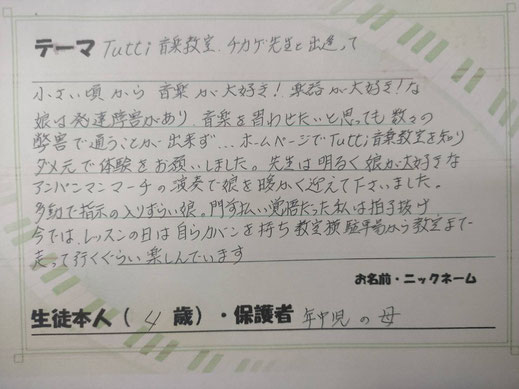 テーマ Tutti音楽教室、チカゲ先生と出逢って
小さい頃から音楽が大好き!楽器が大好き!な
娘は発達障害があり、音楽を習わせたいと思っても数々の
弊害で通うことが出来ず…ホームページでTutti音楽教室を知り
ダメ元で体験をお願いしました。先生は明るく娘が大好きな
アンパンマンマーチの演奏で娘を暖かく迎えて下さいました。
多動で指示の入りずらい娘。門前払い覚悟だった私は拍子抜け
今では、レッスンの日は自らカバンを持ち教室横駐車場から教室まで
走って行くぐらい楽しんでいます
お名前・ニックネーム
生徒本人(4歳)・保護者 年中児の母